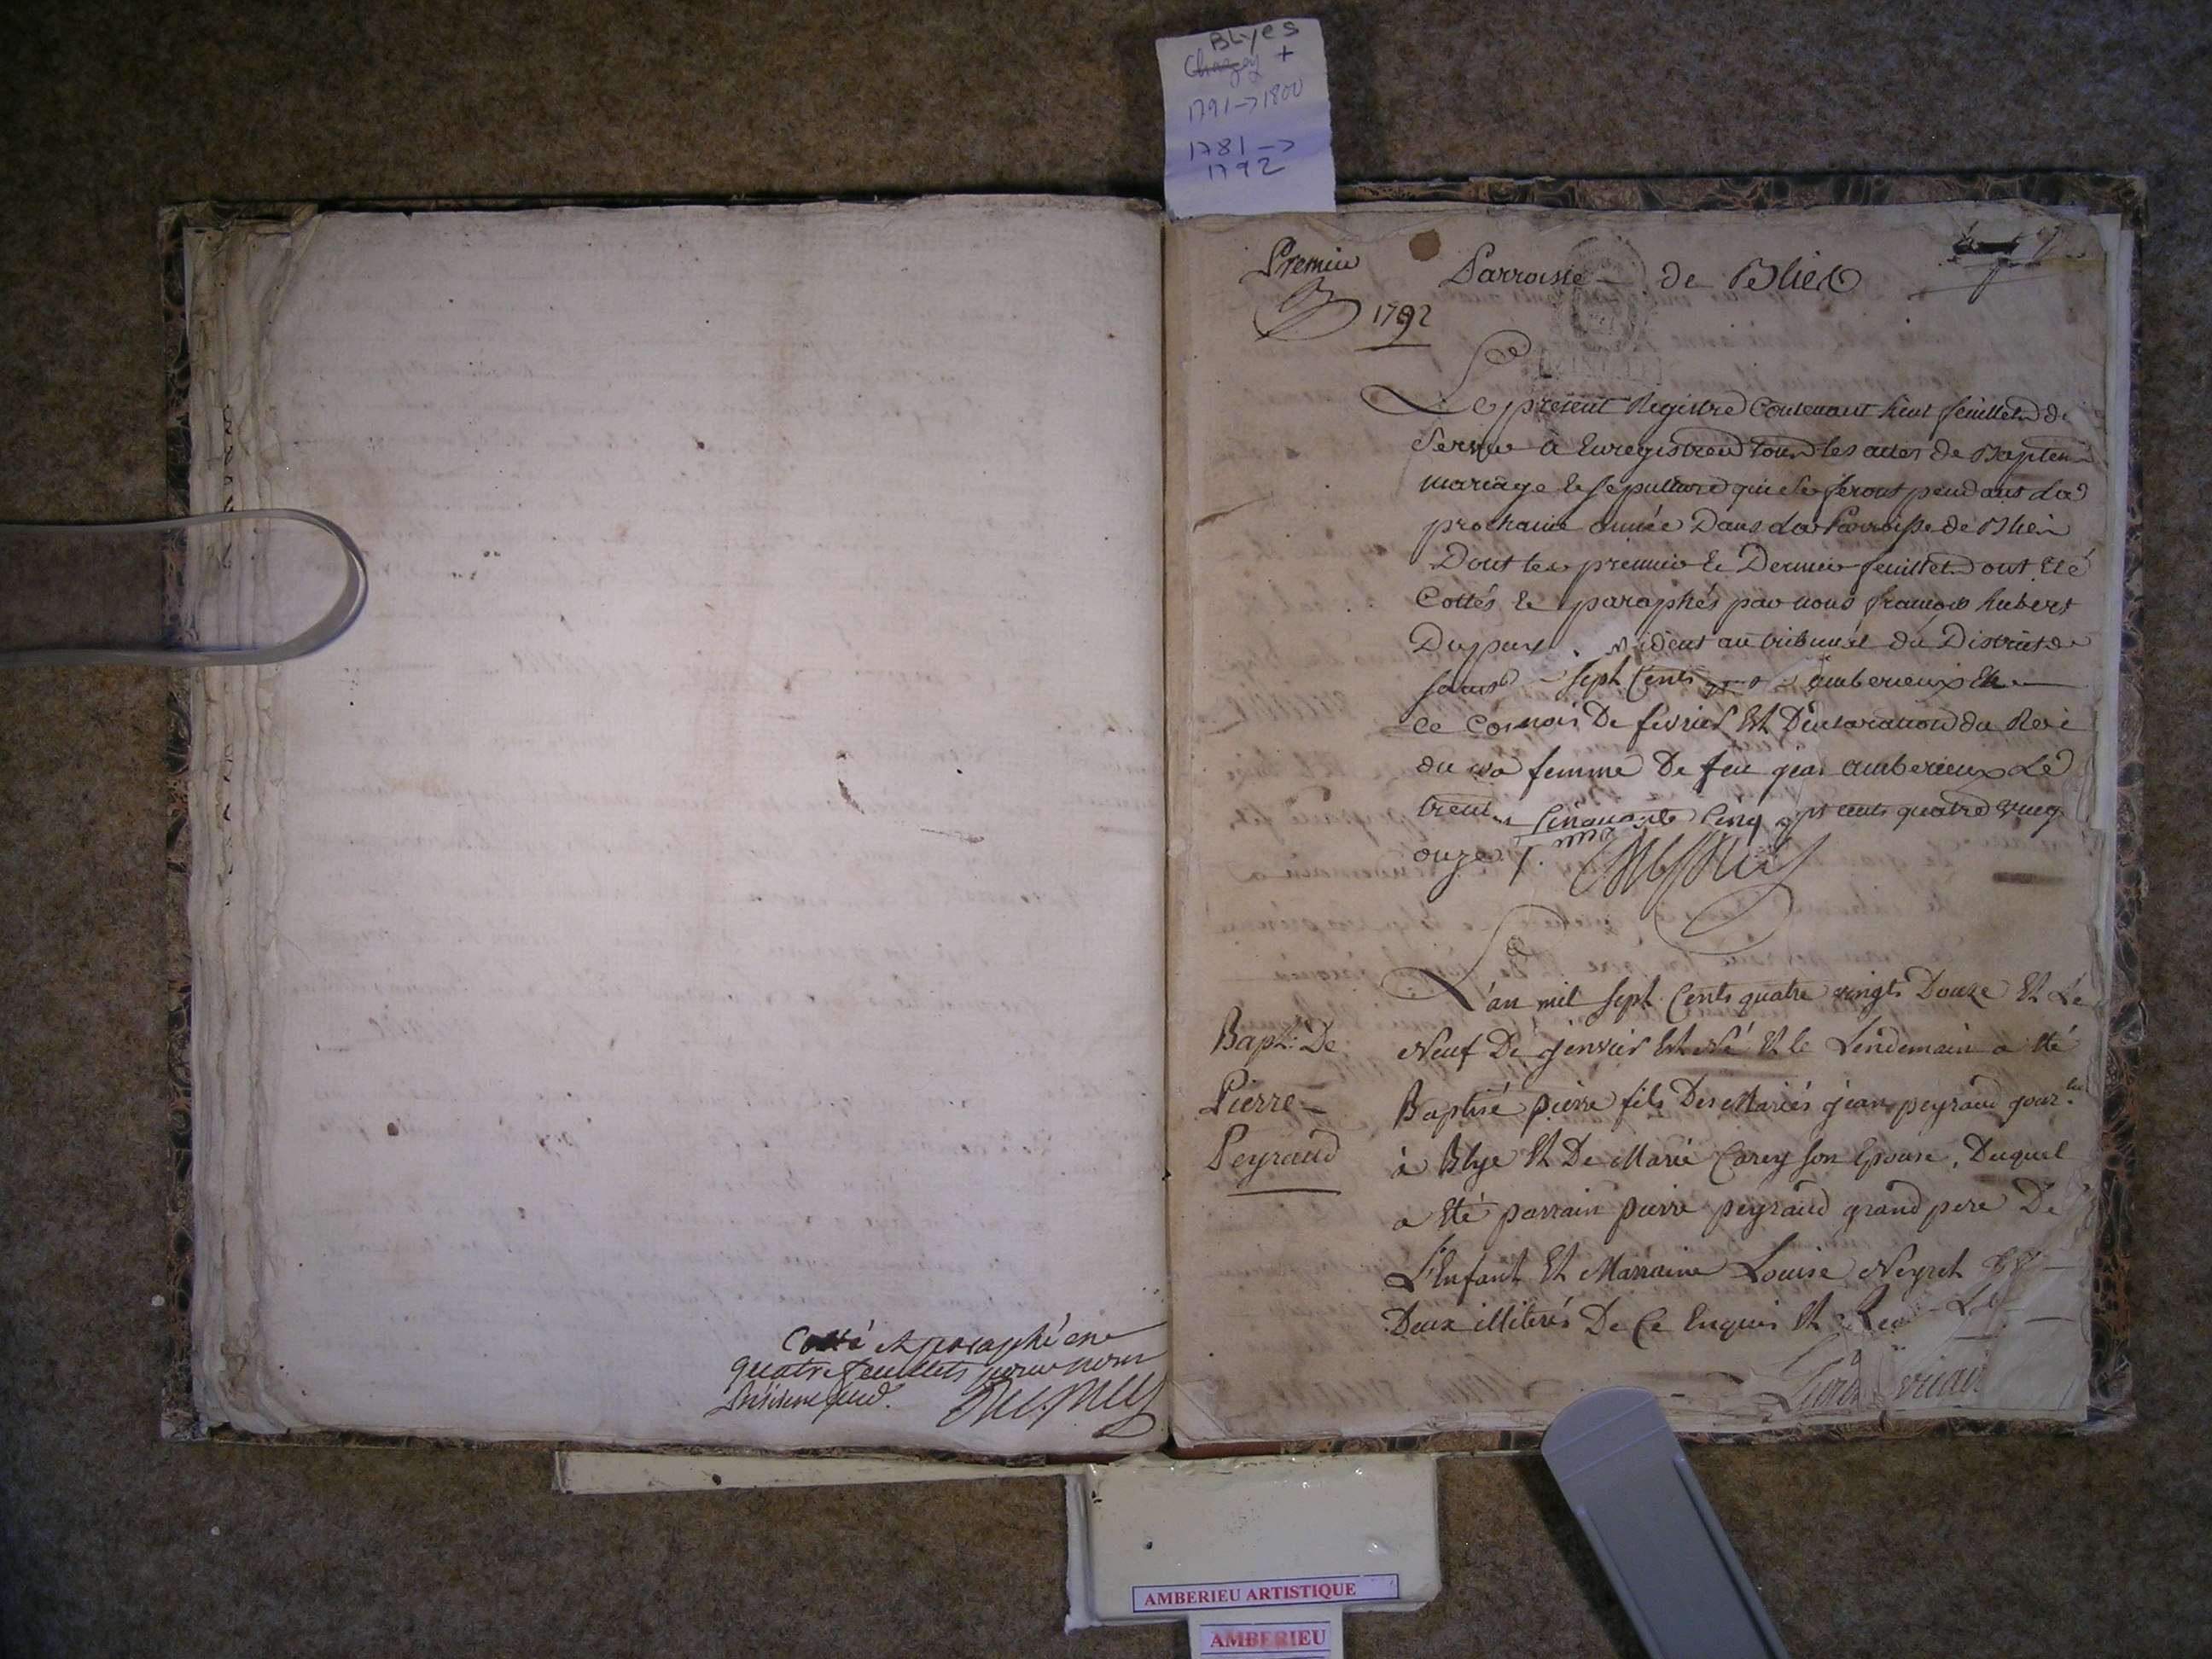 BLyes
Chazey +
1791 -> 1800
1781 ->
1792
Cotté et paraphé en
quatre feuillets par nous
Premier
1792
Parroisse - de Blies
Le present Registre Contenant huit feuillets de
Servir à Enregistrer tous les actes de Baptem
mariage & sepulture qui se feront pendant La
prochaine année Dans La Parroisse de Blies
Dont les premier & Dernier feuillets ont Eté
Cottés & paraphés par nous francois hubert
Dupuy ident au tribunal du District de
sept Cents amberieux En
ce mois De fevrier Et Déclaration du Roi
du la femme De feu jean amberieux Le
trent Cinquante Cinq pt cents quatre ving
onze
L'an mil sept Cents quatre vingts Douze Et Le
Bapt: De
Pierre
Peyraud
Neuf De janvier Est Né Et le Lendemain a Eté
Baptisé pierre fils Des Mariés jean peyraud jour.lier
à Blye Et De Marie Carey son Epouse, Duquel
a Eté parrain pierre peyraud grand pere De
L'Enfant Et Marraine Louise Neyret
Deux illiterés De Ce Enquis Et
AMBERIEU ARTISTIQUE
AMBERIEU